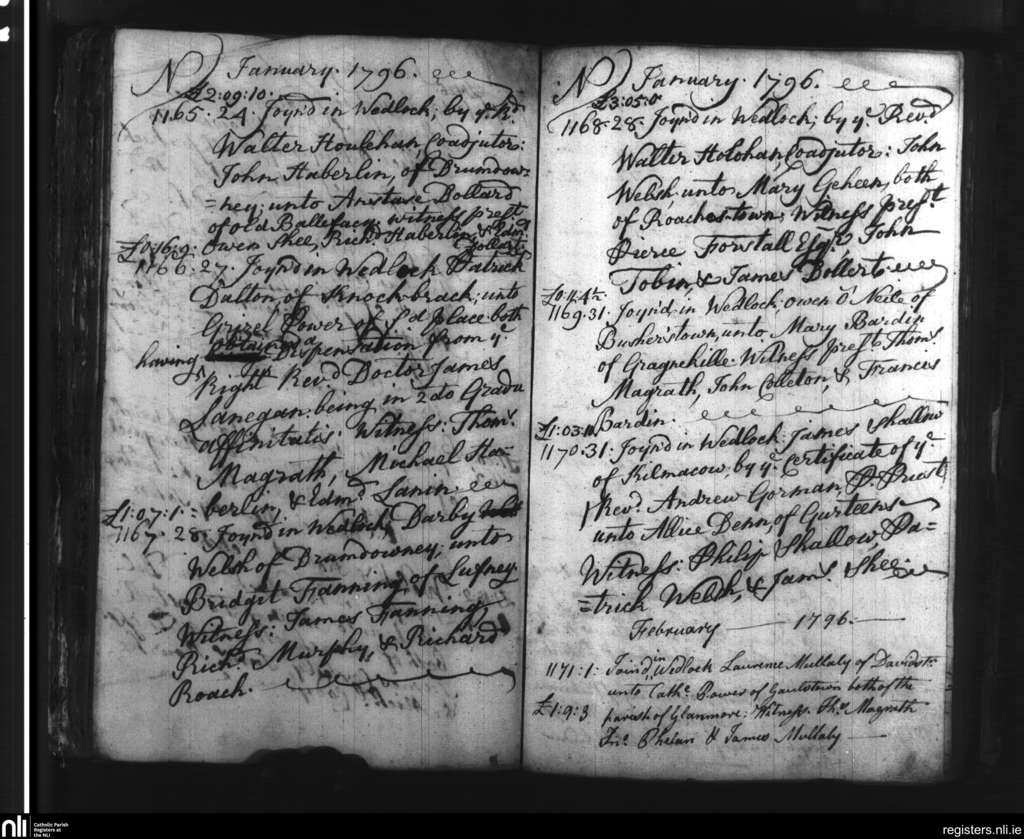 No January. 1796.
£2:09:10.
1165. 24. Joyn'd in Wedlock; by ye Rd.
Walter Houlehan, Coadjutor:
John Haberlin, of Drumdow=
=ney; unto Anstase Dollard
of old Ballefacy; witness prest
Owen Shee, Richd. Haberlin, & Edmd.
Dollard
£0:16:9.
1166. 27. Joyn'd in Wedlock Patrick
Dalton, of Knoch-brack; unto
Grizel Power of sd. place both
having obtained a Dispensation from ye
Right Revd. Doctor James
Lanegan: being in 2do Gradu
affinitatis. Witness: Thoms.
Magrath, Michael Ha-
=berlin, & Edmd. Lanin.
£1:07:1.
1167. 28. Joyn'd in Wedlock, Darby
Welsh of Drumdowney; unto
Bridget Fanning of Lufney
Witness: James Fanning
Richd. Murphy, & Richard
Roach.
No January. 1796.
£3:05:0
1168. 28. Joyn'd in Wedlock; by ye Revd
Walter Holohan, Coadjutor: John
Welsh, unto Mary Geheen, both
of Roaches-town; Witness prest.
Pierce Forstall Esqr. John
Tobin, & James Dollert.
£0:11:4½
1169. 31. Joyn'd in Wedlock, Owen O'Neile of
Busherstown, unto Mary Bardin
of Gragnehille. Witness prest. Thoms.
Magrath, John Colleton, & Francis
Bardin.
£1:03:11
1170. 31. Joyn'd in Wedlock James Shallow
of Kilmacow, by ye Certificate of ye
Revd. Andrew Gorman, P. Priest
unto Allice Denn, of Gurteens
Witness: Philip Shallow, Pa=
=trick Welsh, & Jams. Shee.
February 1796.
1171. 1. Joind in Wedlock Laurence Mullaly of Davidstn.
unto Cathe. Power of Gaulstown both of the
£1:9:3 parish of Glanmore: Witness. Ths. Magrath
Jno. Phelan & James Mullaly
nli Catholic Parish
Registers at
the NLI
registers.nli.ie